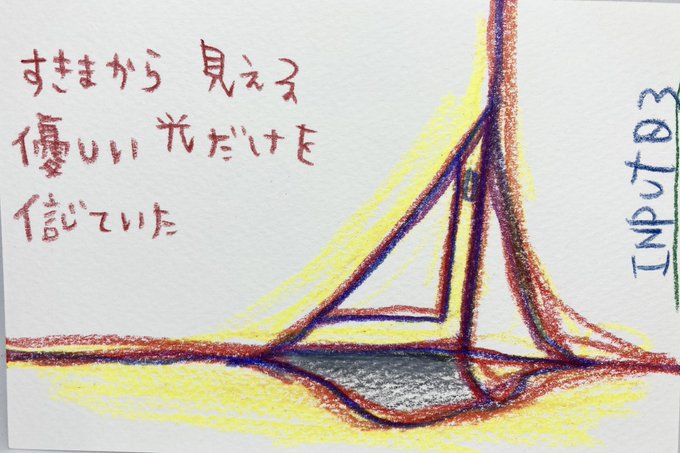 すきまから 見える
優しい光だけを
信じていた
INPUT03